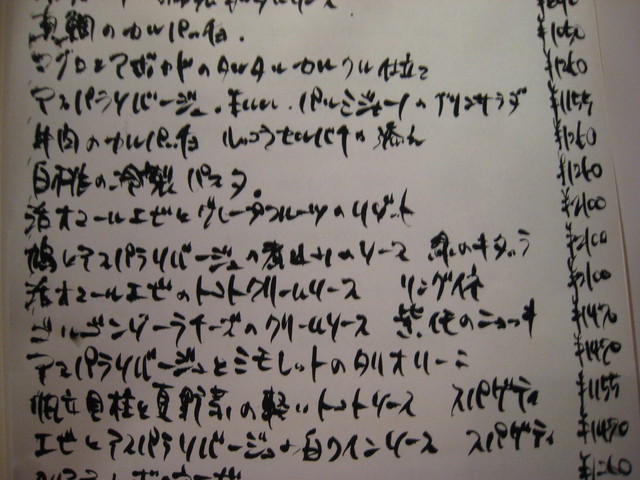 真鯛のカルパッチョ。 ¥1050
マグロとアボカドのタルタル カルクル仕立て ¥1260
アスパラソバージュ、 パルミジャーノのグリーンサラダ ¥1155
牛肉のカルパッチョ セルバチカ添え ¥1260
自 の冷製パスタ。 ¥1260
活オマールエビとグレープフルーツのリゾット ¥2100
鳩とアスパラソバージュの煮込みのソース キタッラ ¥2100
活オマールエビのトマトクリームソース リングイネ ¥2100
ゴルゴンゾーラチーズのクリームソース 紫イモのニョッキ ¥1470
アスパラソバージュとミモレットのタリオリーニ ¥1470
帆立貝柱と夏野菜の軽いトマトソース スパゲティ ¥1155
エビとアスパラソバージュの白ワインソース スパゲティ ¥1470
¥1260